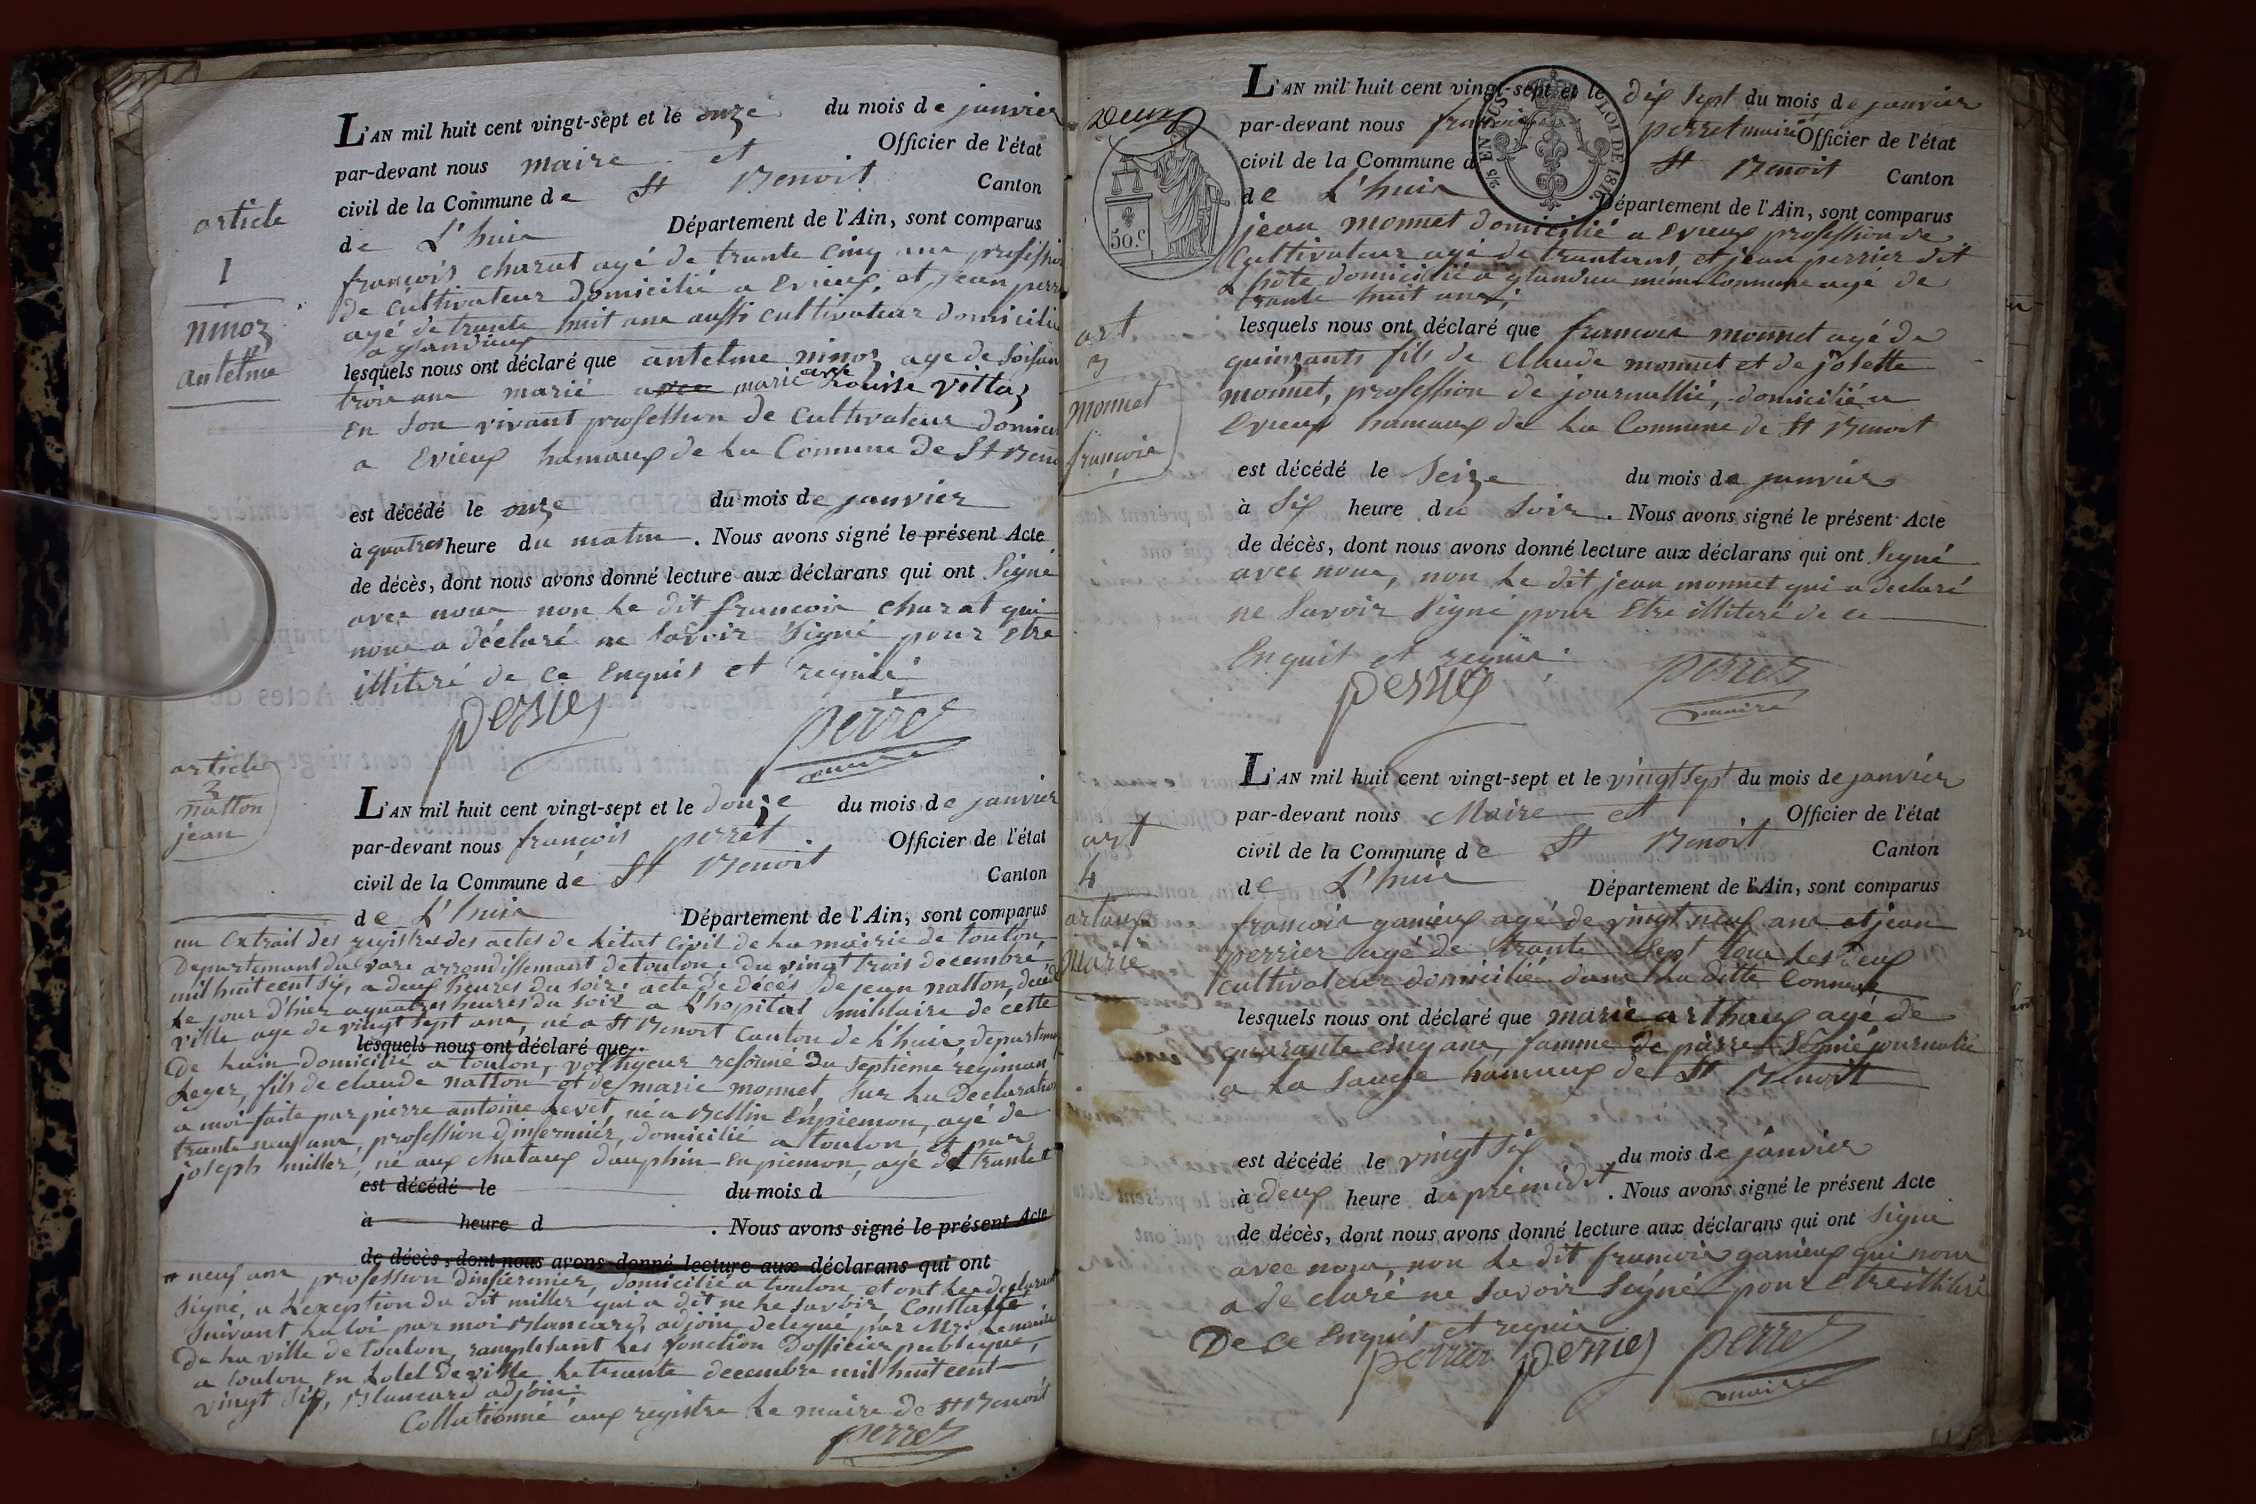 article
1
ninoz
antelme
L'AN mil huit cent vingt-sept et le onze du mois de janvier
par-devant nous maire et Officier de l'état
civil de la Commune de St Benoit Canton
de L'huis Département de l'Ain, sont comparus
françois charat agé de trante cinq ans professio
de cultivateur domicilié a Evieux, et jean perr
agé de trante huit ans aussi cultivateur domicilié
a glandieux
lesquels nous ont déclaré que antelme ninoz age de soisan
trois ans marié avec marie Louise vittoz
en son vivant profession de cultivateur domici
a Evieux hamaux de La Commune De St Beno
est décédé le onze du mois de janvier
à quatres heure du matin. Nous avons signé le présent Acte
de décès, dont nous avons donné lecture aux déclarans qui ont Signé
avec nous non Le dit francois charat qui
nous a déclaré ne savoir Signé pour Etre
illiteré de Ce Enquis et requis
perrier perret
maire
article
2
natton
jean
L'AN mil huit cent vingt-sept et le douze du mois de janvier
par-devant nous françois perret Officier de l'état
civil de la Commune de St Benoit Canton
de L'huis Département de l'Ain, sont comparus
un Extrait des registres des actes de Létat civil de La mairie de toulon,
Departemant du vare arrondissemant de toulon, du vingt trois decembre
mil huit cent six, a deux heures du soir. acte de décès De jean natton, décédé
Le jour d'hier a quatres heures du Soir a L'hopital militaire de cette
ville age de vingt sept ans, né a St Benoit canton de L'huis, departem
lesquels nous ont déclaré que
De Lain domicilié a toulon, voltigeur reformé Du septieme regiman
Leger, fils de claude natton et de marie monnet, Sur La Declaration
a moi faite par pierre antoine Levet, né a Bellin Enpiemon, agé de
trante neuf ans, profession d'infermier, domicilié a toulon, et par
joseph miller, né aux chataux dauphin Enpiemon, agé de trante
est décédé le du mois d
à heure d . Nous avons signé le présent Acte
de décès, dont nous avons donné lecture aux déclarans qui ont
neuf ans profession d'infiermier, domicilié a toulon et ont Les declarans
Signé, a Lexeption du dit miller qui a dit ne Le savoir, Constatté
Suivant La loi par moi Blancard, adjoin delegué par Mr. Le maire
de La ville de toulon, ramplissant Les fonction D'officier publique,
a toulon En Lotel De ville Le trante decembre mil huit cent
vingt Six, Blancard adjoin.
Collationné aux registre Le maire de St Benoit
perret
Deux
50.c
EN SUS
LOI DE 1816
L'AN mil huit cent vingt-sept et le dix Sept du mois de janvier
par-devant nous françois perret maire Officier de l'état
civil de la Commune d St Benoit Canton
de L'huis Département de l'Ain, sont comparus
jean monnet domicilié a Evieux profession de
Cultivateur agé de trantans et jean perrier dit
hôte domicilié a glandieu même Commune agé de
trante huit ans;
art
3
monnet
françois
lesquels nous ont déclaré que francois monnet agé de
quinzants fils de Claude monnet et de josette
monnet, profession de journallié, domicilié a
Evieux hamaux de La Commune de St Benoit
est décédé le Seize du mois de janvier
à Six heure du Soir. Nous avons signé le présent Acte
de décès, dont nous avons donné lecture aux déclarans qui ont Signé
avec nous, non Le dit jean monnet qui a declaré
ne Savoir Signé pour Etre illiteré de ce
Enquis et requis.
perrier perret
maire
art
4
artaux
Marie
L'AN mil huit cent vingt-sept et le vingt Sept du mois de janvier
par-devant nous Maire et Officier de l'état
civil de la Commune de St Benoit Canton
de L'huis Département de l'Ain, sont comparus
francois ganieux agé de vingt neuf ans et jean
perrier agé de trante Sept tous Les Deux
cultivateur domicilié dans La ditte Commune
lesquels nous ont déclaré que marie arthaux agé de
quarante cinq ans, famme De pierre journalié
a La Sauge hamaux de St Benoit
est décédé le vingt Six du mois de janvier
à deux heure d apremidit. Nous avons signé le présent Acte
de décès, dont nous avons donné lecture aux déclarans qui ont Signé
avec nous, non Le dit francois ganieux qui nous
a de claré ne Savoir Signé pour Etre illiteré
De ce Enquis et requis
perrier perrier perret
maire